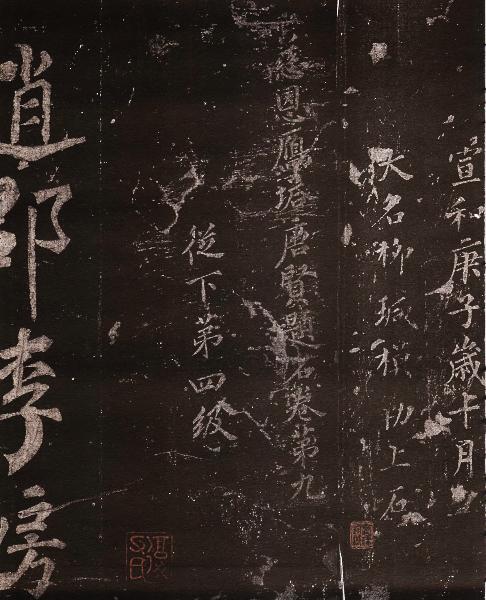 宣和庚子歲十月
大名柳瑊稹功上石
慈恩鴈塔唐賢題名卷第九
從下第四級
道郎李房